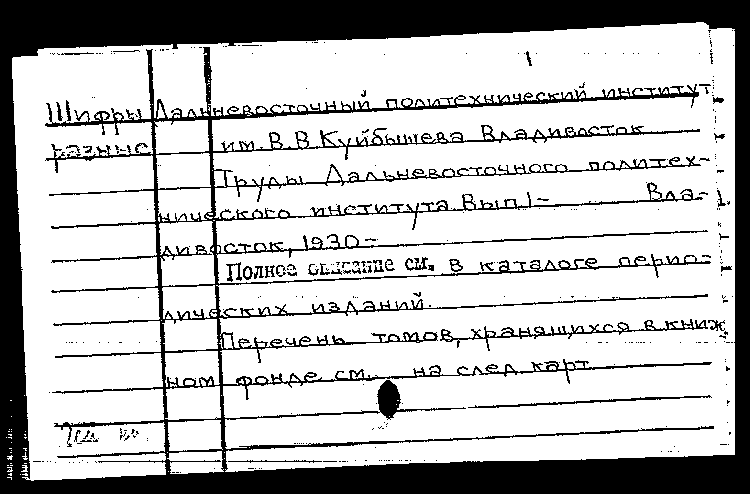 1
Шифры Дальневосточный политехнический институт
разные им. В.В. Куйбышева Владивосток
Труды Дальневосточного политех-
нического института. Вып.1- Вла-
дивосток, 1930-
Полное описание см. в каталоге перио-
дических изданий.
Перечень томов, хранящихся в книж
ном фонде см. на след. карт